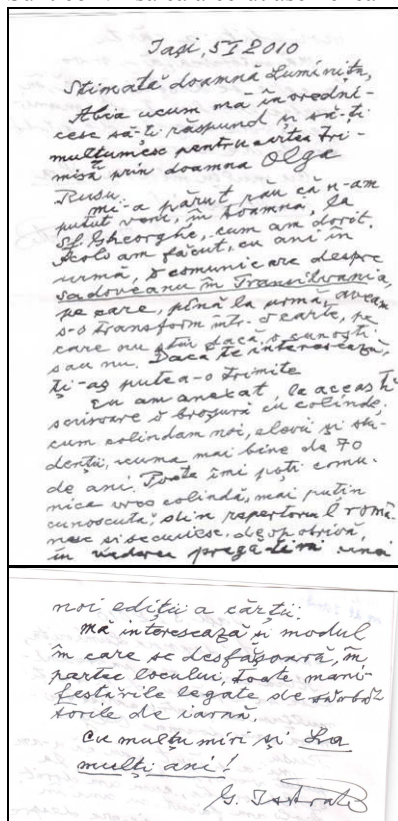 Iași, 5 I 2010
Stimată doamnă Luminița,
Abia acum mă învredni-
cesc să-ți răspund și să-ți
mulțumesc pentru cartea tri-
misă prin doamna Olga
Rusu.
Mi-a părut rău că n-am
putut veni, în toamnă, la
Sf. Gheorghe, cum am dorit.
Acolo am făcut, cu ani în
urmă, o comunicare despre
Sadoveanu în Transilvania,
pe care, pînă la urmă, aveam
s-o transform într-o carte, pe
care nu știu dacă o cunoști
sau nu. Dacă te interesează,
ți-aș putea-o trimite
Eu am anexat, la această
scrisoare o broșură cu colinde,
cum colindam noi, elevii și stu-
denții, acuma mai bine de 70
de ani. Poate îmi poți comu-
nica vreo colindă, mai puțin
cunoscută, din repertoriul româ-
nesc și secuiesc, deopotrivă,
în vederea pregătirii unei
noi ediții a cărții.
Mă interesează și modul
în care se desfășoară, în
partea locului, toate mani-
festările legate de sărbă-
torile de iarnă.
Cu mulțumiri și La
mulți ani!
G. Istrate